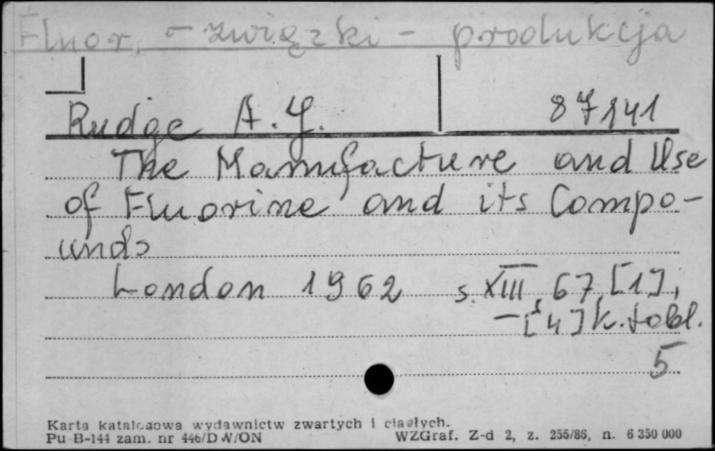 Fluor, - związki - produkcja
Rudge A.J. 87141
The Manufacture and Use
of Fluorine and its Compo-
unds
London 1962 s. XIII, 67, [1],
- [4] k. tabl.
5
Karta katalogowa wydawnictw zwartych i ciągłych.
Pu B-144 zam. nr 446/DW/ON WZGraf. Z-d 2, z. 255/86, n. 6 350 000